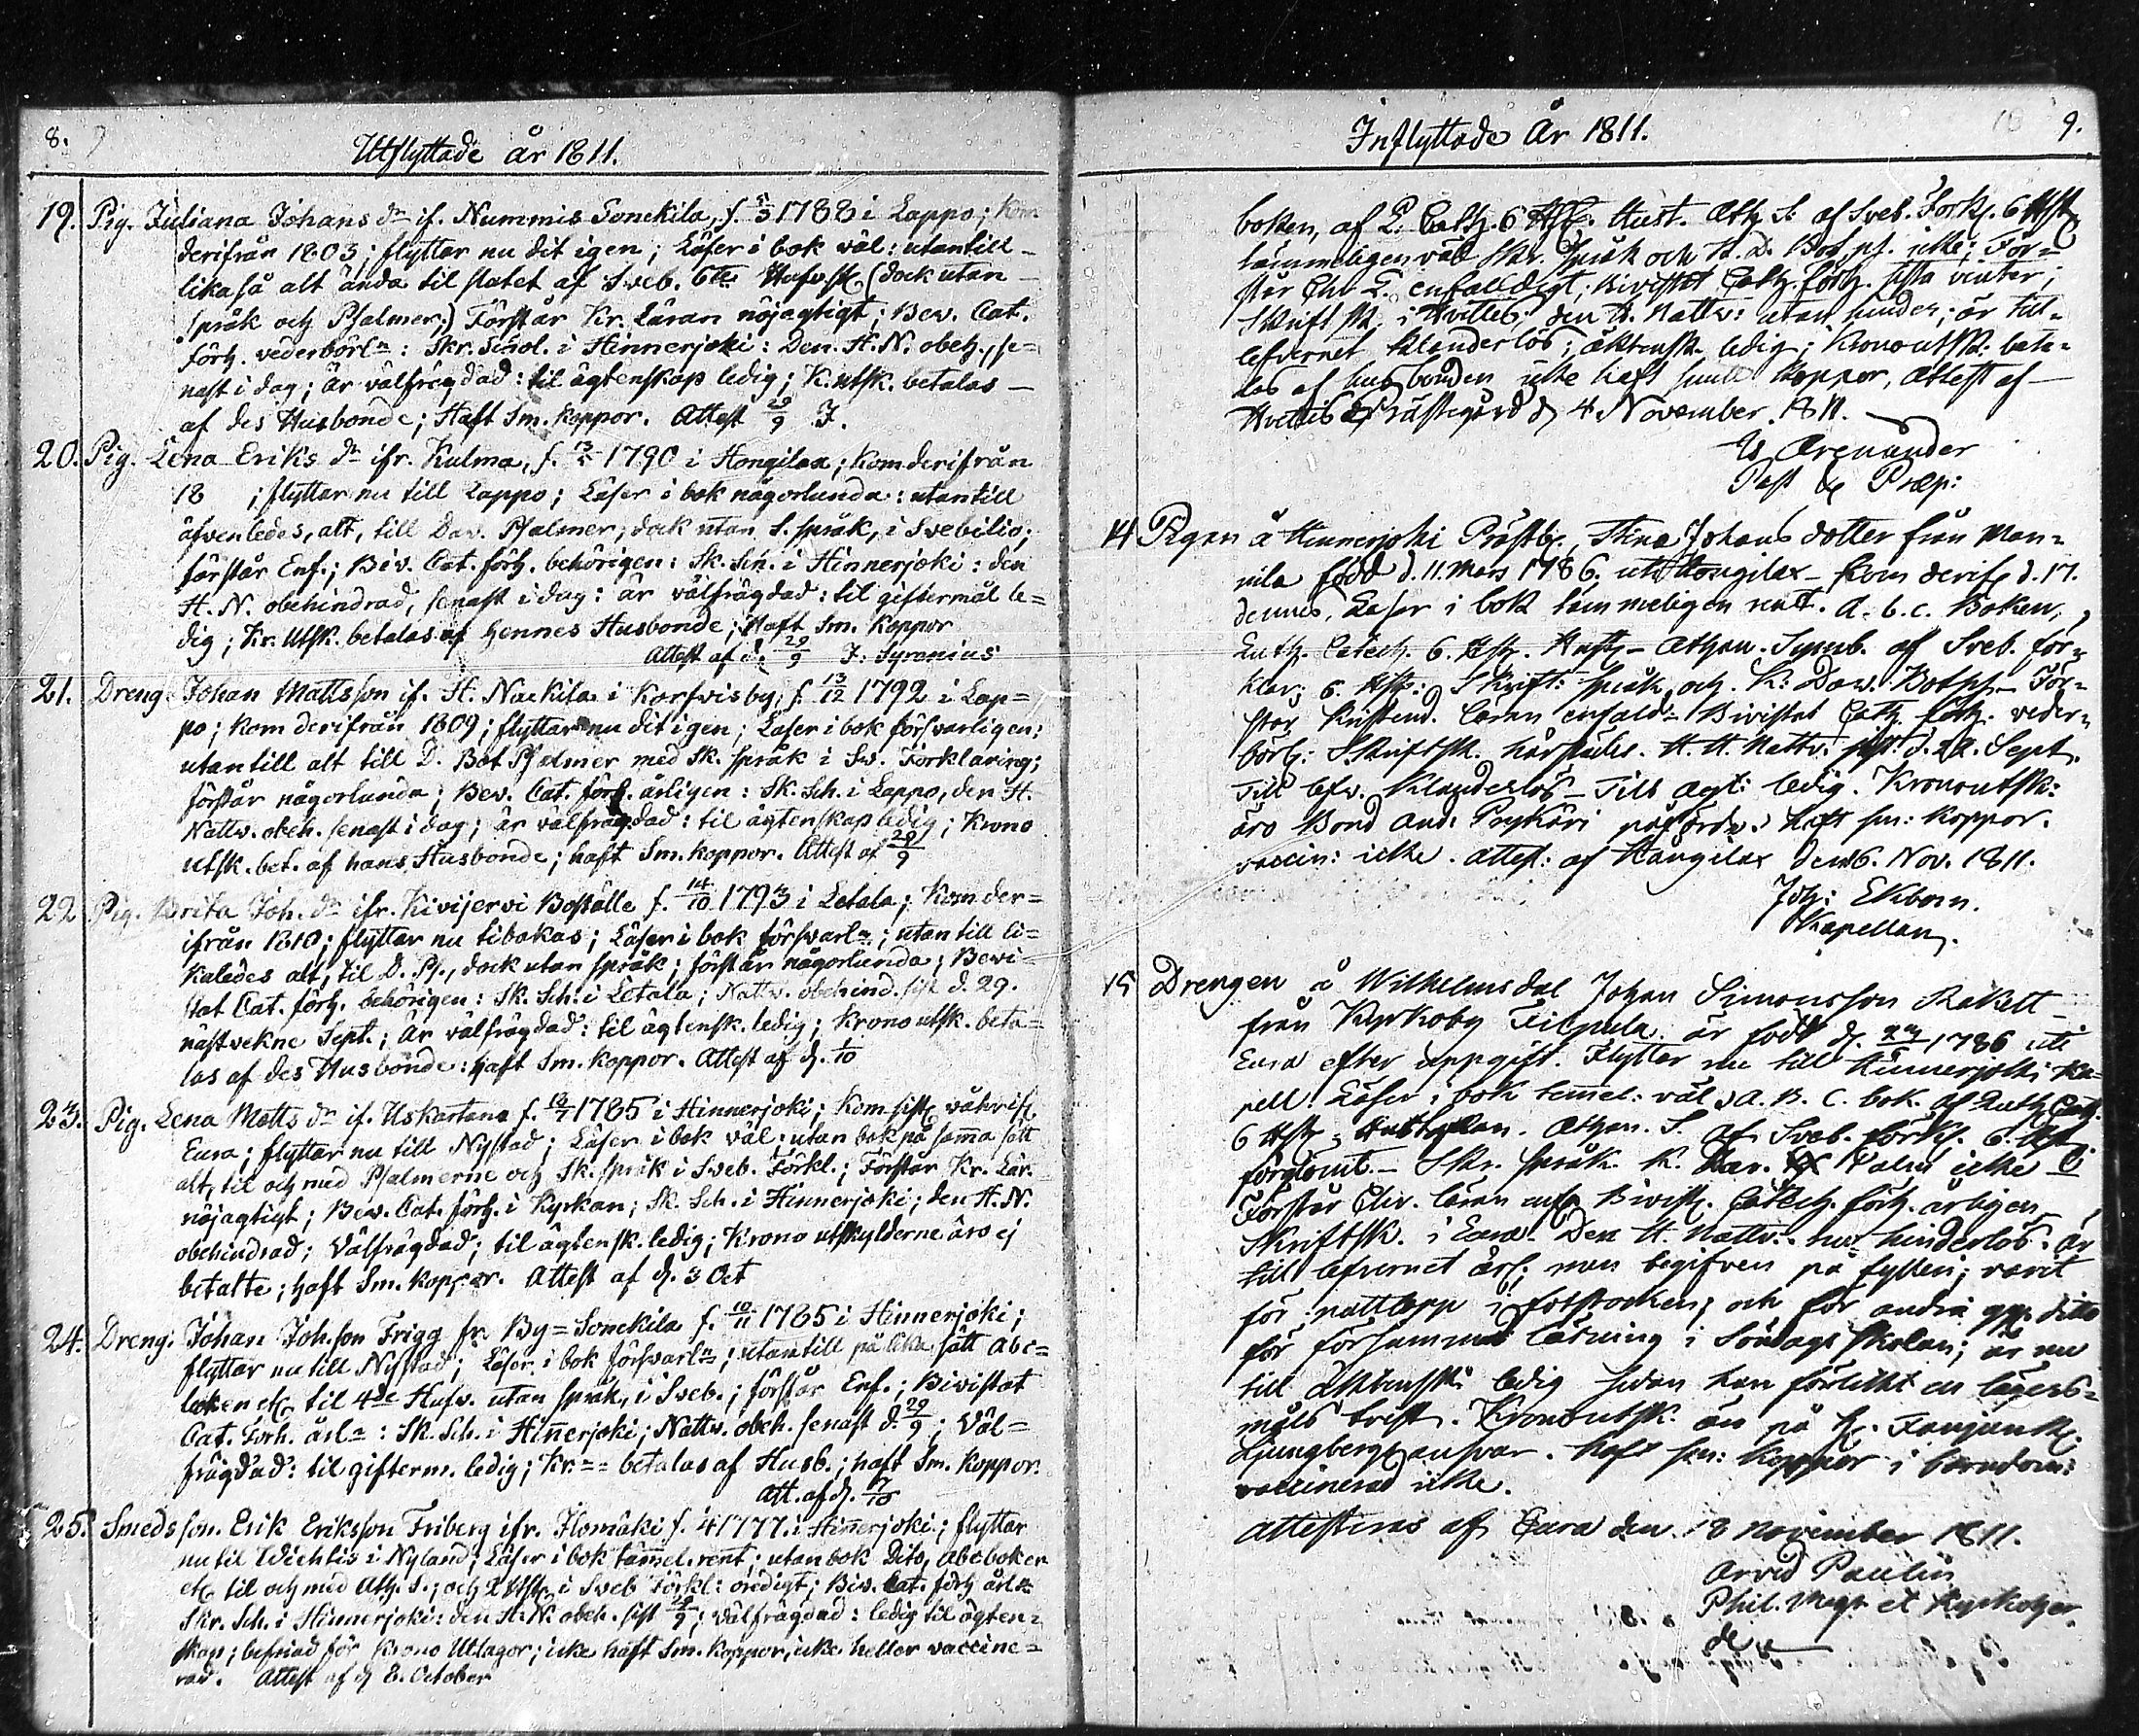 8.
Utflyttade år 1811.
19. Pig. Juliana Johans dr if. Nummis Sonckila, f. 5/3 1788 i Lappo; Kom
derifrån 1803; flyttar nu dit igen; Läser i bok väl: utantill
likaså alt ända til slutet af Sveb. 6te Hufvst. (dock utan
språk och Psalmer;) Förstår Kr. Läran nöjagtigt; Bev. Cat.
förh. vederbörln: Skr. Schol. i Hinnerjoki: Den H. N. obeh., se=
nast i dag; är välfrägdad: til ägtenskap ledig; K. utsk. betalas
af des Husbonde; Haft Sm. koppor. Attest 29/9 J.
20. Pig. Lena Eriks dr ifr. Kulma, f. 13/5 1790 i Hongilax; Kom derifrån
18 ; flyttar nu till Lappo; Läser i bok någorlunda: utantill
äfvenledes, alt, till Dav. Psalmer, dock utan S. språk, i Svebilio;
förstår Enf.; Biv. Cat. förh. behörigen: Sk. Sch. i Hinnerjoki: den
H. N. obehindrad, senast i dag: är välfrägdad: til giftermål le=
dig; Kr. Utsk. betalas af hennes Husbonde; Haft Sm. Koppor
Attest af d. 29/9 J. Syrenius
21. Dreng Johan Mattsson if. H. Nackila i Korfvisby, f. 13/12 1792 i Lap=
po; kom derifrån 1809; flyttar nu dit igen; Läser i bok försvarligen:
utantill alt till D. Bot Psalmer med Sk. språk i Sv. Förklaring;
förstår någorlunda; Bev. Cat. förh. årligen: Sk. Sch. i Lappo, den H.
Nattv. obeh. senast i dag; är välfrägdad: til ägtenskap ledig; Krono
utsk. bet. af hans Husbonde; haft Sm. koppor. Attest af 29/9
22. Pig. Brita Joh. dr ifr. Kivijervi Boställe f. 14/10 1793 i Letala; Kom der=
ifrån 1810; flyttar nu tibakas; Läser i bok försvarln; utan till li=
kaledes alt, til D. Ps., dock utan språk; förstår någorlunda; Bevi=
stat Cat. förh. behörigen: Sk. Sch. i Letala; Nattv. obehind. sist d. 29.
nästvekne Sept.; Är välfrägdad: til ägtensk. ledig; Krono utsk. beta=
las af des Husbonde: haft Sm. koppor. Attest af d. 1/10
23. Pig. Lena Matts dr if. Uskartano f. 1785 i Hinnerjoki; Kom sist
Eura; flyttar nu till Nystad; Läser i bok väl: utan bok på samma sätt
alt, til och med Psalmerne och Sk. språk i Sveb. Förkl.; Förstår Kr. Lär.
nöjagtigt; Bev. Cat. förh. i Kyrkan; Sk. Sch. i Hinnerjoki; den H. N.
obehindrad; Välfrägdad; til ägtensk. ledig; Krono utskylderne äro ej
betalte; haft Sm. koppor. Attest af d. 3 Oct
24. Dreng. Johan Joh.son Frigg fr. By=Sonckila f. 10/11 1785 i Hinnerjoki;
flyttar nu till Nystad; Läser i bok försvarln; utantill på lika sätt Abc=
boken etc til 4de Hufv. utan språk, i Sveb.; förstår Enf.; Bivistat
Cat. Förh. årln: Sk. Sch. i Hinnerjoki; Nattv. obeh. senast d. 29/9; Väl=
frägdad: til gifterm. ledig; Kr. == betalas af Husb.; haft Sm. koppor.
Att. af d. 7/10
25. Smedsson. Erik Eriksson Friberg ifr. Ilomäki f. 4 1777 i Hinnerjoki; flyttar
nu til Wichtis i Nyland; Läser i bok tämmel. rent; utan bok Dito, Abcboken
etc til och med Ath. S.; och 2 Hfst. i Sveb Förkl: oredigt; Biv. Cat. förh årln
Skr. Sch. i Hinnerjoki: den H. N. obeh. sist 29/9; välfrägdad: ledig til ägten=
skap; befriad för Krono Utlagor; icke haft Sm. koppor, icke heller vaccine=
rad. Attest af d 8. October
9.
Inflyttade År 1811.
boken, af L. Cath. 6 Hfst. Hust. Ath. S. af Sveb. Förkl. 6 Hfst
tämmeligen väl Skr. språk och K. D. Bot ps. icke; För=
står Chr. L. enfalldigt; bivistat Cath. förh. sista vinter;
Skriftsk. i Hvittis; den H. Nattv: utan hinder; är till
lefvernet klanderlös; äktensk. ledig; Kronoutsk: beta=
las af husbonden icke haft små koppor, Attest af
Hvittis Prästegård d 4 November 1811.
Arenander
Past & Præp:
14 Pigan å Hinnerjoki Prästbg, Stina Johans dotter från Man=
nila född d. 11. Mars 1786. uti Hongilax – kom derif. d. 17.
dennes, Läser i bok tammeligen rent. A. b. c. Boken,
Luth. Catech. 6. Hfst. Hust. – Athan. Symb. af Sveb. för=
klar: 6. Hfst: Skrift: språk och K: Dav. Botps. – För=
står Kristend. läran enfald – Bivistat Cath. förh. veder=
börl: Skriftsk. härstädes. H. H. Nattv: sist d. 22. Sept.
Till lefv. Klanderlös – Till ägt: ledig. Kronoutsk:
äro Bond And: påförde. haft sm: koppor.
vaccin: icke. attest: af Hongilax den 6. Nov. 1811.
Joh: Ekbom.
Kapellan.
15 Drengen å Wilhelmsdal Johan Simonsson Rakett
från Kyrkoby Filpula är född d. 1786 uti
Eura efter uppgift. Flyttar nu till Hinnerjoki Ka=
pell. Läser i bok temel: väl, A. B. C. bok. af Luth Cath.
6 Hfst, Hustaflan. Athan. S. af Sveb. förkl. 6. Hfst
Skr. språk. K. Dav. Psalm icke
Förstår Chr. läran Bivist. Catech. förh. årligen
Skriftsk. i Eura. Den H. Nattv. hinderlös. är
till lefvernet ärl; men begifven på fylleri; varit
för nattlopp i fotstocken; och för andra ggr ditto
för försummad läsning i Söndags skolan; är nu
till äktensk: ledig sedan han förlikt en lägers=
måls tvist. Kronoutsk. än på Hr. Fanjunk.
Ljungbergs ansvar. haft sm: koppor i barndom:
vaccinerad icke.
attesteras af Eura den 18 November 1811.
Arvid Paulin
Phil. Mag. et Kyrkoher
de